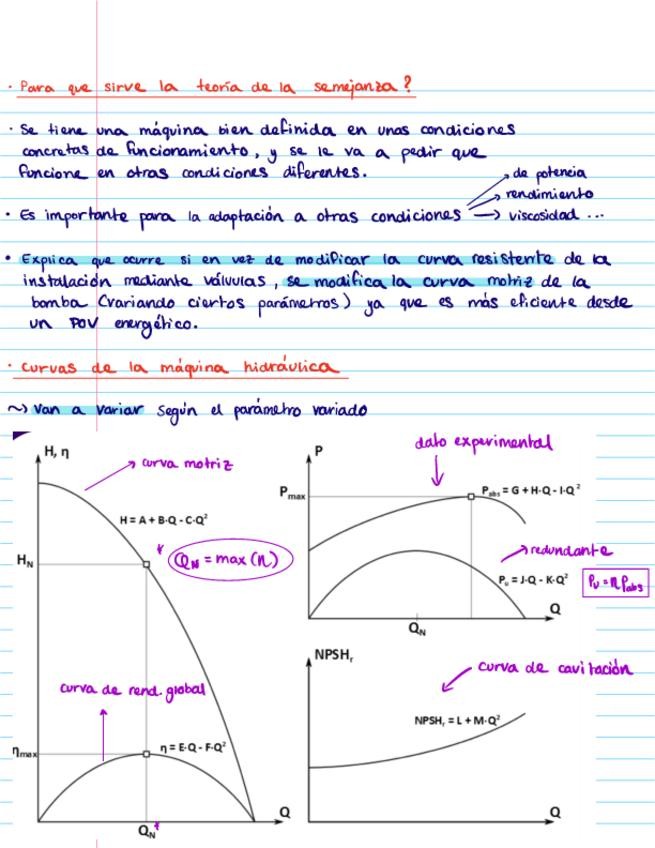 · Para que sirve la teoría de la semejanza?
· Se tiene una máquina bien definida en unas condiciones
concretas de funcionamiento, y se le va a pedir que
funcione en otras condiciones diferentes.
de potencia
rendimiento
• Es importante para la adaptación a otras condiciones → viscosidad ...
• Explica que ocurre si en vez de modificar la curva resistente de la
instalación mediante válvulas, se modifica la curva motriz de la
bomba (variando ciertos parámetros) ya que es más eficiente desde
un POV energético.
· Curvas de la máquina hidráulica
~> Van a variar según el parámetro variado
H, η
curva motriz
H = A + B·Q - C·Q²
H_N
* Q_N = max (η)
curva de rend. global
η_max
η = E·Q - F·Q²
Q
Q_N*
dato experimental
P
P_max
P_abs = G + H·Q - I·Q²
redundante
P_u = J·Q - K·Q²
P_u = η P_abs
Q
Q_N
NPSH_r
curva de cavitación
NPSH_r = L + M·Q²
Q